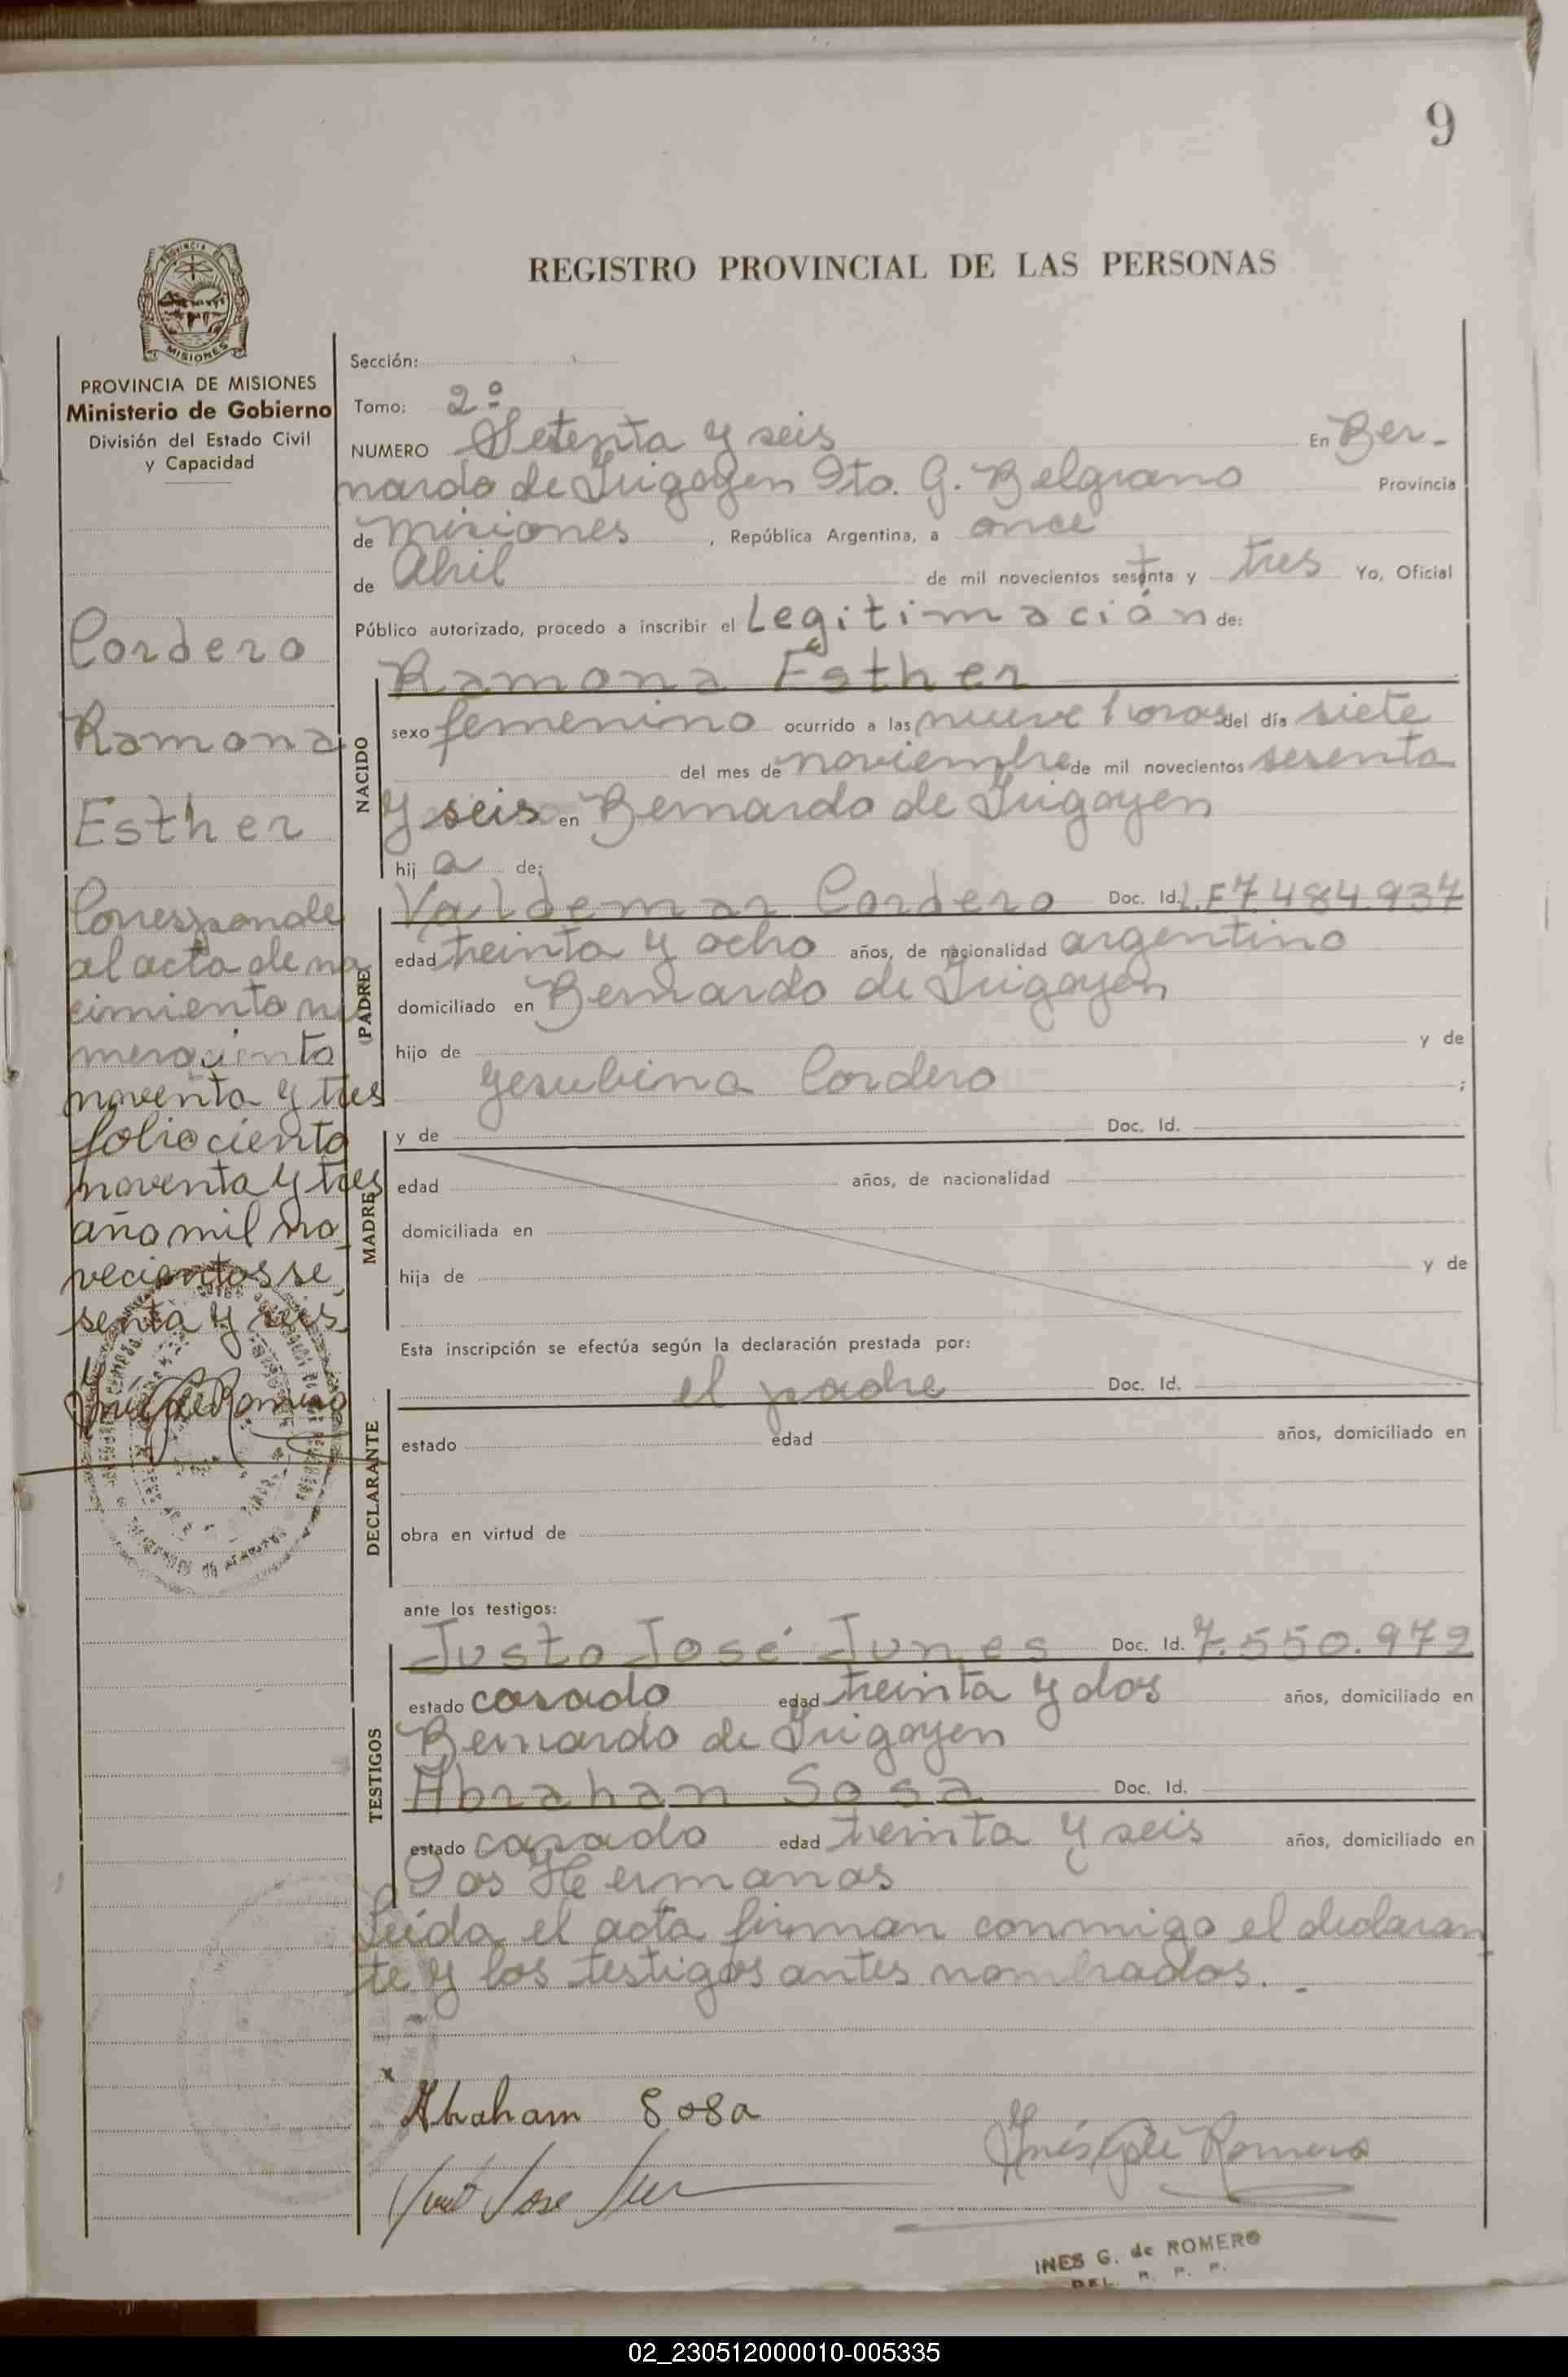 9
REGISTRO PROVINCIAL DE LAS PERSONAS
PROVINCIA DE MISIONES
Ministerio de Gobierno
División del Estado Civil
y Capacidad
Cordero
Ramona
Esther
Corresponde
al acta de na
cimiento nú
mero ciento
noventa y tres
folio ciento
noventa y tres
año mil no
vecientos se
senta y seis.
Sección:
Tomo: 2º
NUMERO Setenta y seis En Ber-
nardo de Irigoyen Dto. G. Belgrano Provincia
de Misiones, República Argentina, a once
de Abril de mil novecientos setenta y tres Yo, Oficial
Público autorizado, procedo a inscribir el Legitimación de:
NACIDO
Ramona Esther
sexo femenino ocurrido a las nueve horas del día siete
del mes de noviembre de mil novecientos sesenta
y seis en Bernardo de Irigoyen
hij a de:
PADRE
Valdemar Cordero Doc. Id. 7.484.937
edad treinta y ocho años, de nacionalidad argentino
domiciliado en Bernardo de Irigoyen
hijo de y de
Gesubina Cordero ;
MADRE
y de Doc. Id.
edad años, de nacionalidad
domiciliada en
hija de y de
Esta inscripción se efectúa según la declaración prestada por:
DECLARANTE
el padre Doc. Id.
estado edad años, domiciliado en
obra en virtud de
ante los testigos:
TESTIGOS
Justo José Junes Doc. Id. 7.550.972
estado casado edad treinta y dos años, domiciliado en
Bernardo de Irigoyen
Abrahan Sosa Doc. Id.
estado casado edad treinta y seis años, domiciliado en
Dos Hermanas
Leída el acta firman conmigo el declaran
te y los testigos antes nombrados.-
x
Abraham Sosa
Inés G de Romero
Just Jose Jun
INES G. de ROMERO
DEL. R. P. P.
02_230512000010-005335